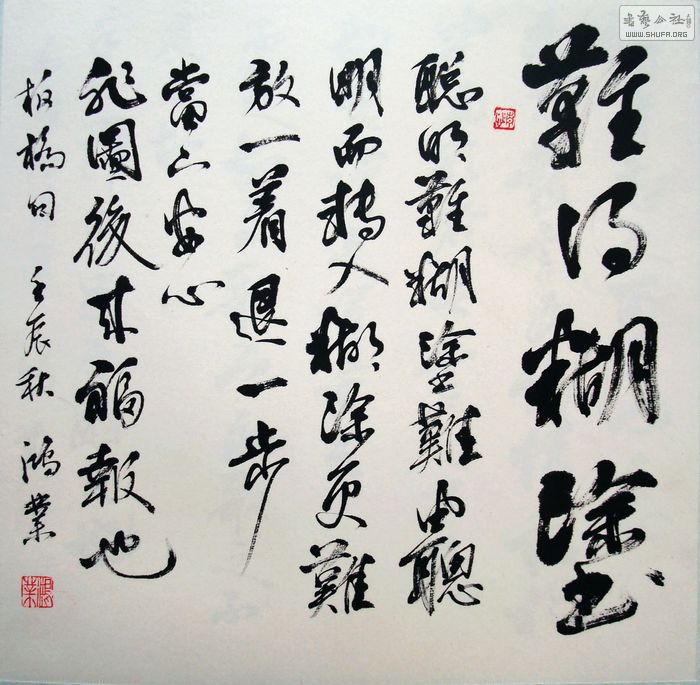 難得糊塗
聪明難糊塗難由聰
明而轉入糊涂更難
放一着退一步
當下安心
非圖後來福報也
板橋句 壬辰秋 鴻業
鴻業
書藝公社
WWW.SHUFA.ORG